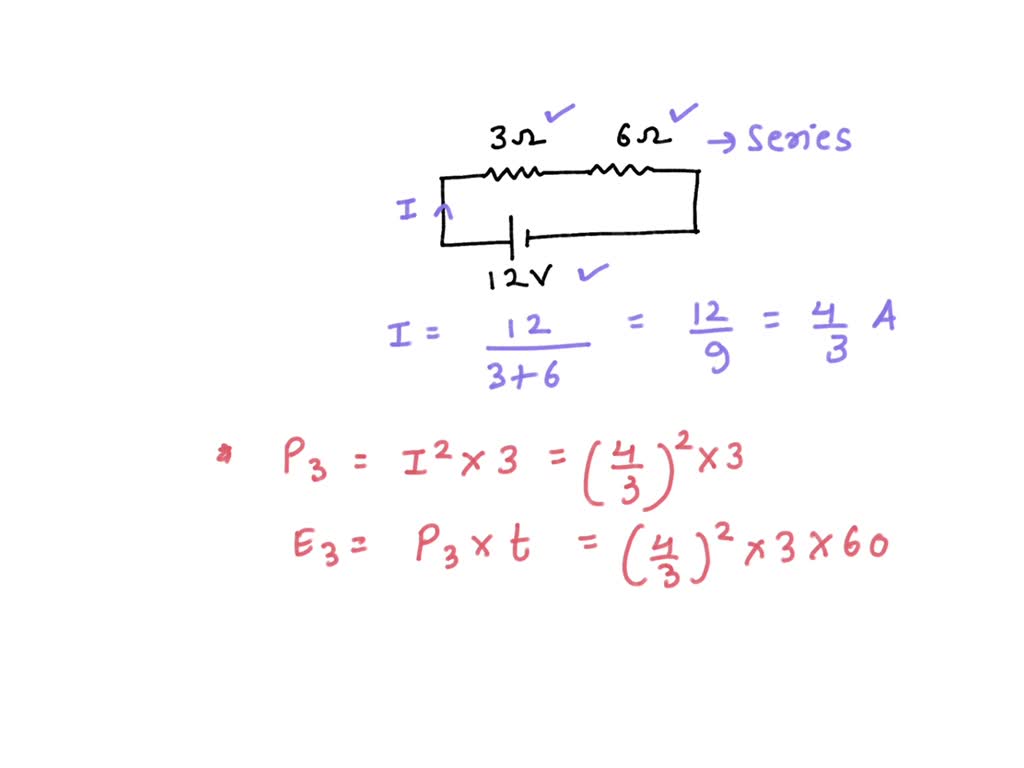 3Ω ✓ 6Ω ✓ → Series
I
12V ✓
I = 12/(3+6) = 12/9 = 4/3 A
* P₃ = I² × 3 = (4/3)² × 3
E₃ = P₃ × t = (4/3)² × 3 × 60